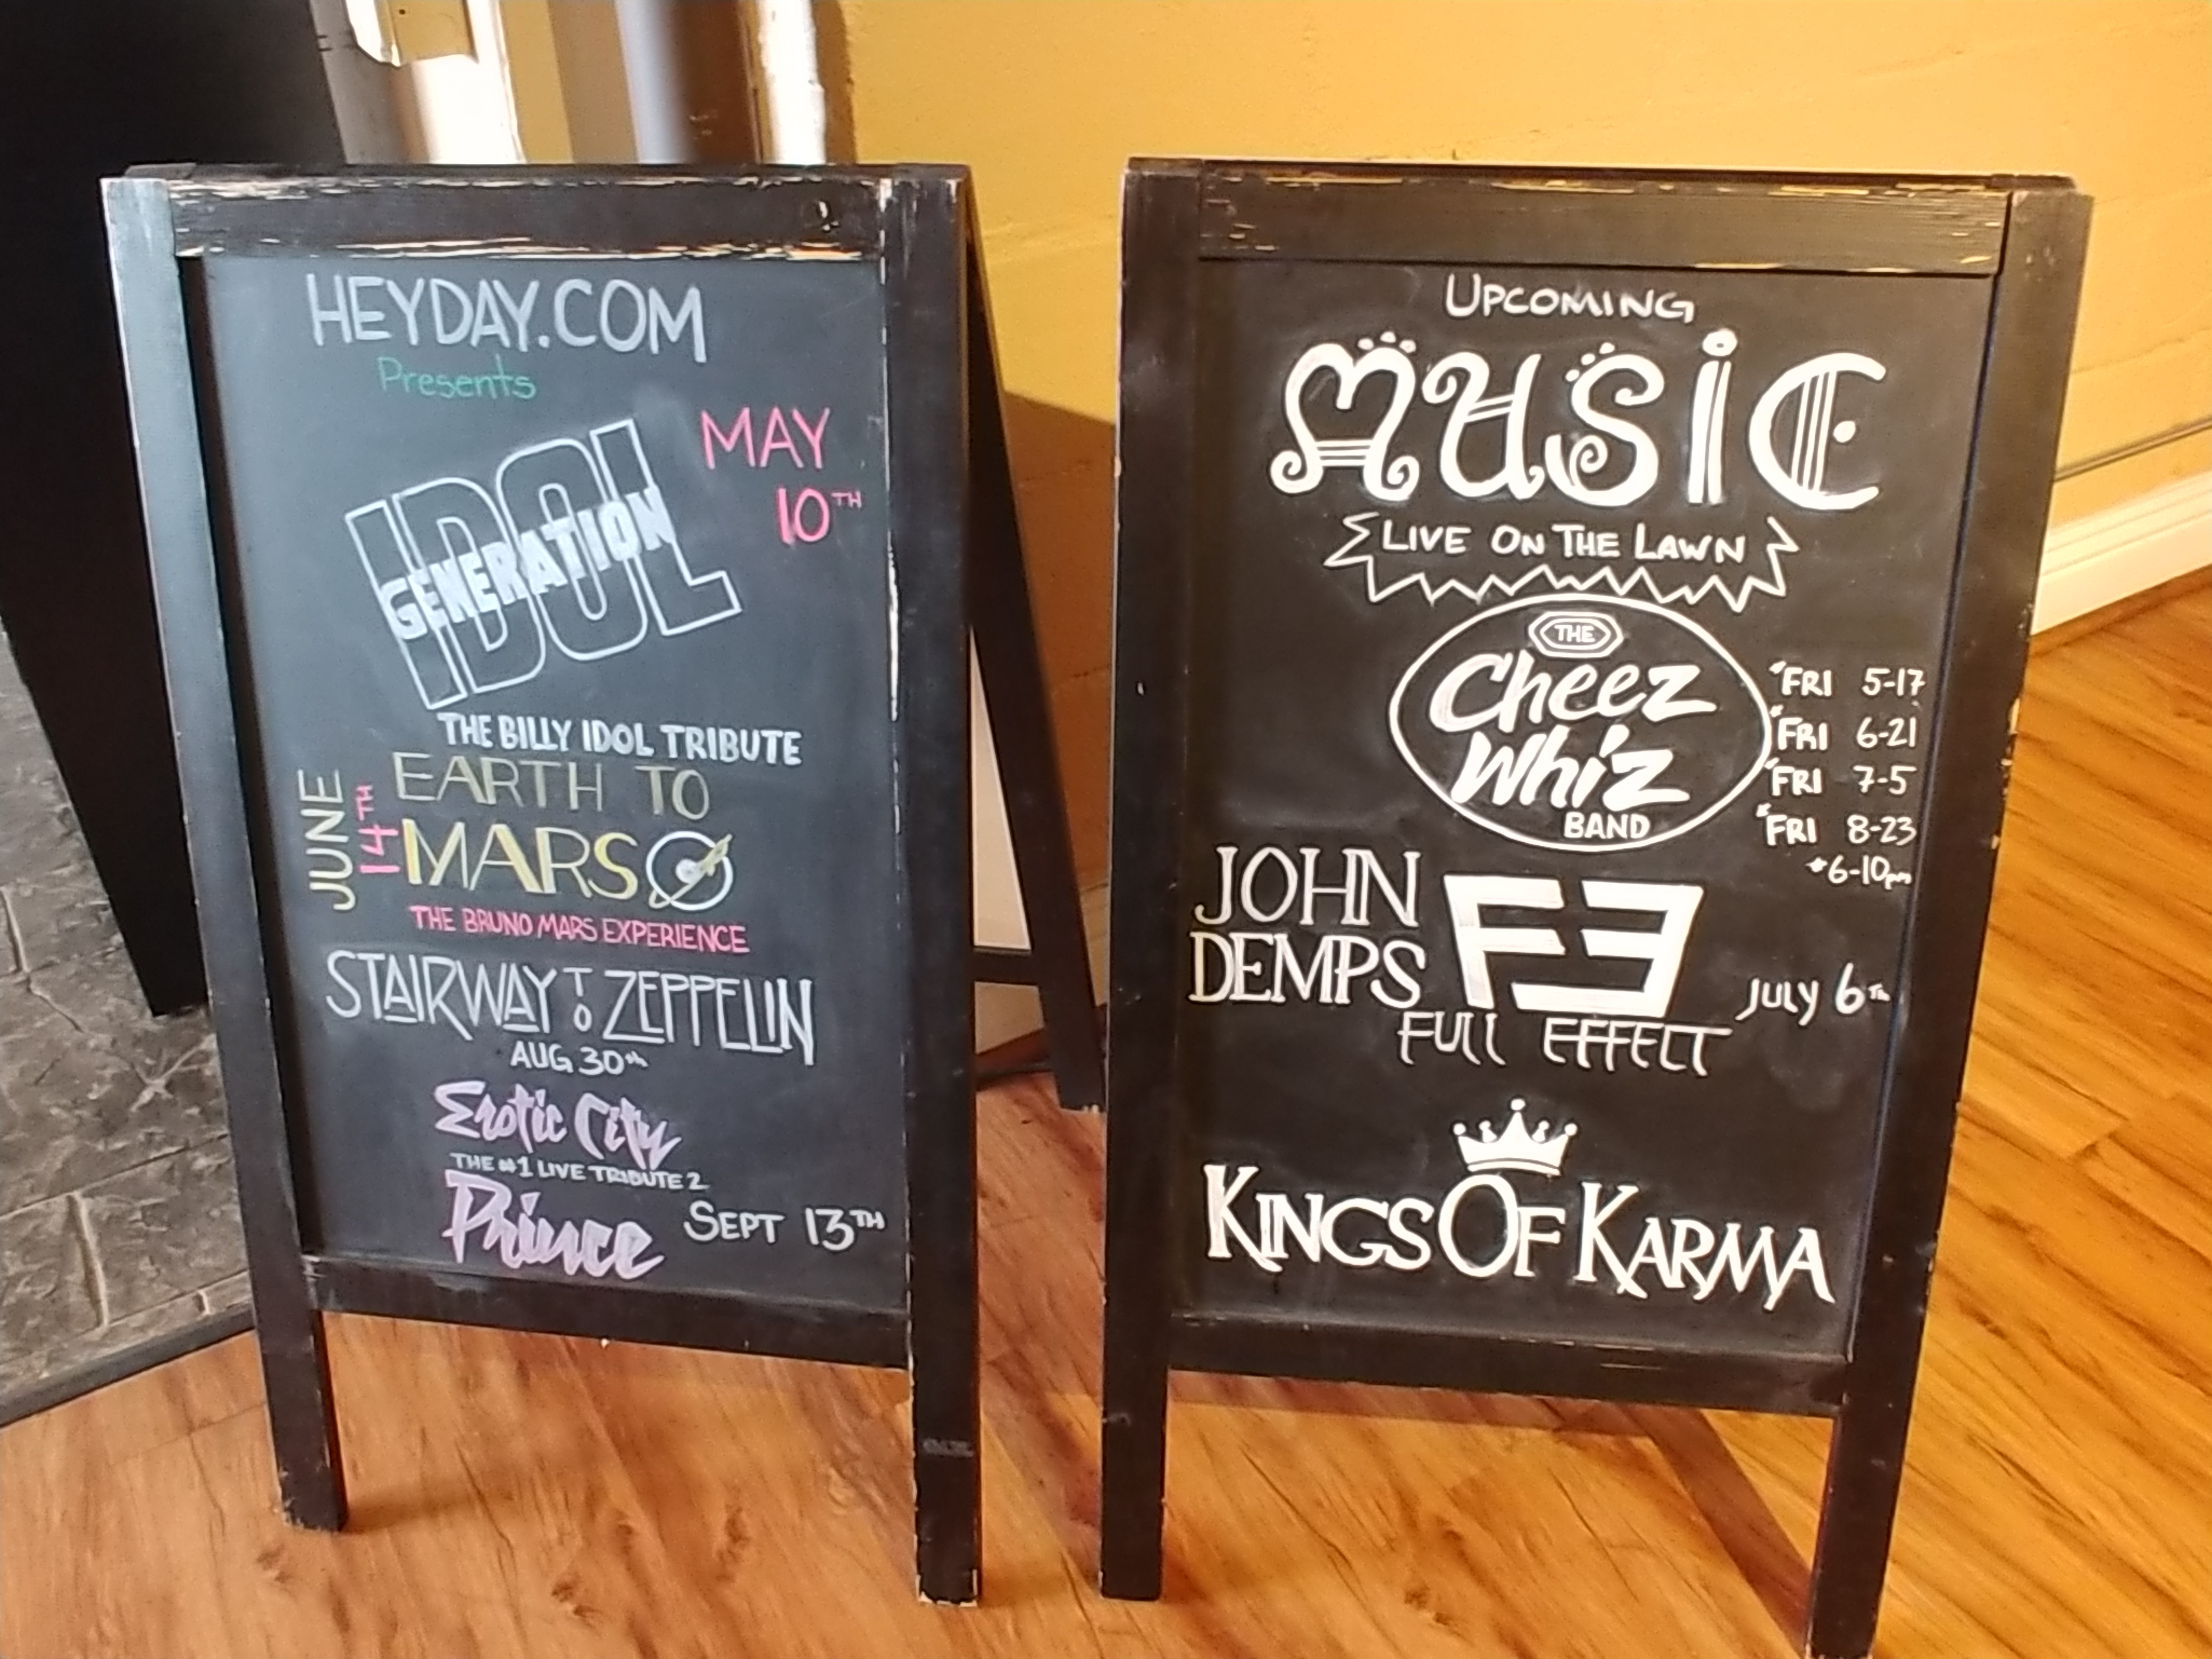 HEYDAY.COM
Presents
MAY
10TH
IDOL
GENERATION
THE BILLY IDOL TRIBUTE
JUNE
14TH
EARTH TO
MARS
THE BRUNO MARS EXPERIENCE
STAIRWAY TO ZEPPELIN
AUG 30th
Erotic City
THE #1 LIVE TRIBUTE 2
Prince
SEPT 13TH
UPCOMING
MUSiC
LIVE ON THE LAWN
THE
Cheez
Whiz
BAND
*FRI 5-17
*FRI 6-21
*FRI 7-5
*FRI 8-23
*6-10pm
JOHN
DEMPS
FE
FULL EFFECT
JULY 6TH
KINGS OF KARMA